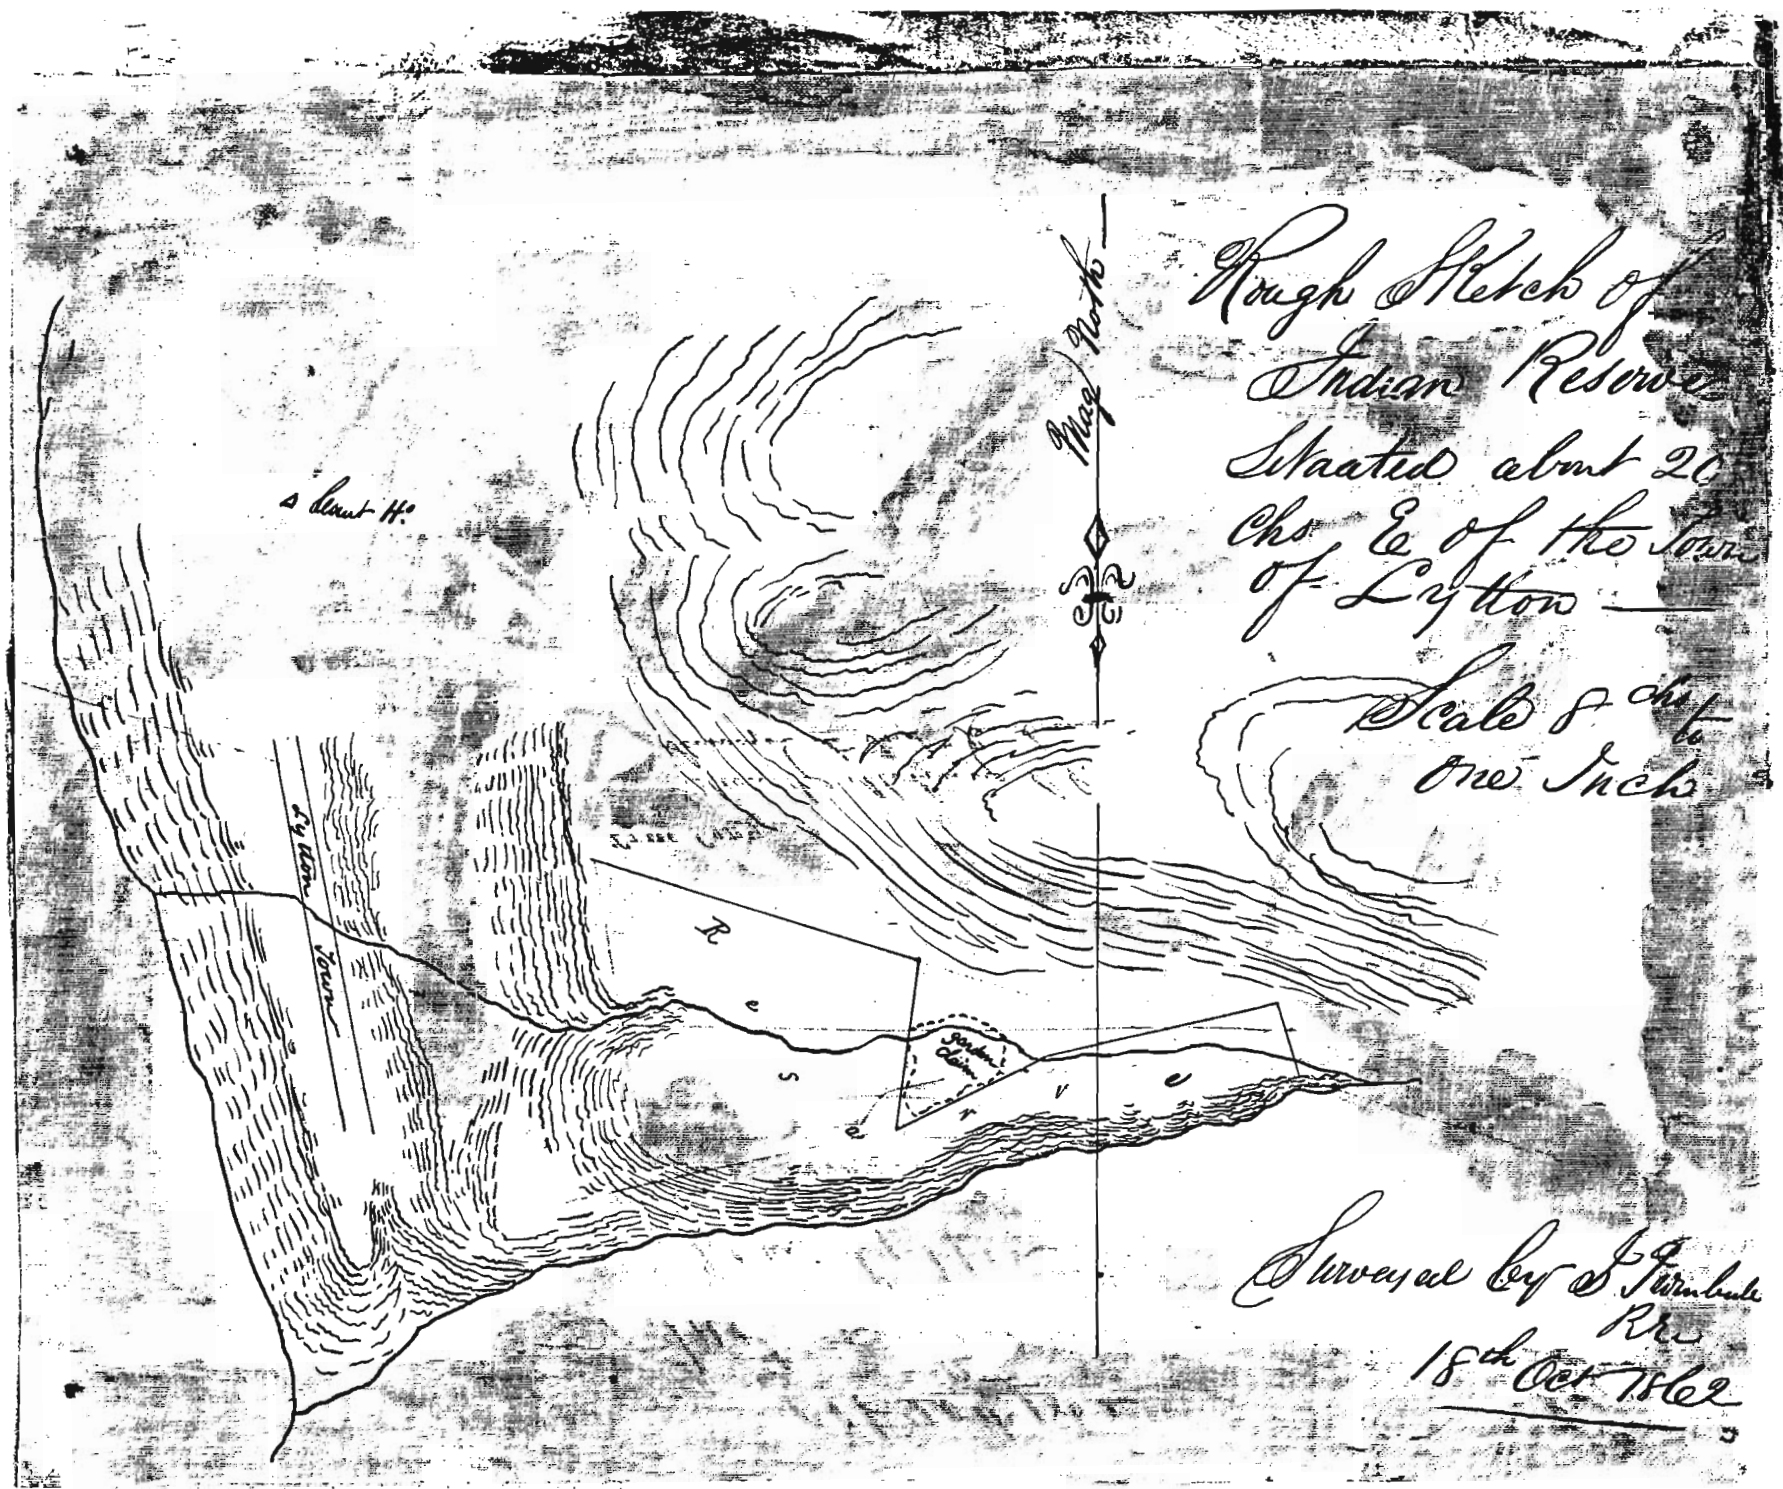 Rough Sketch of
Indian Reserve
Situated about 20
Chs E of the Town
of Lytton
Scale 8 chs to
one Inch
Mag North
Court Ho
Lytton Town
R e s e r v e
garden
claim
Surveyed by J Turnbull
RE
18th Oct 1862